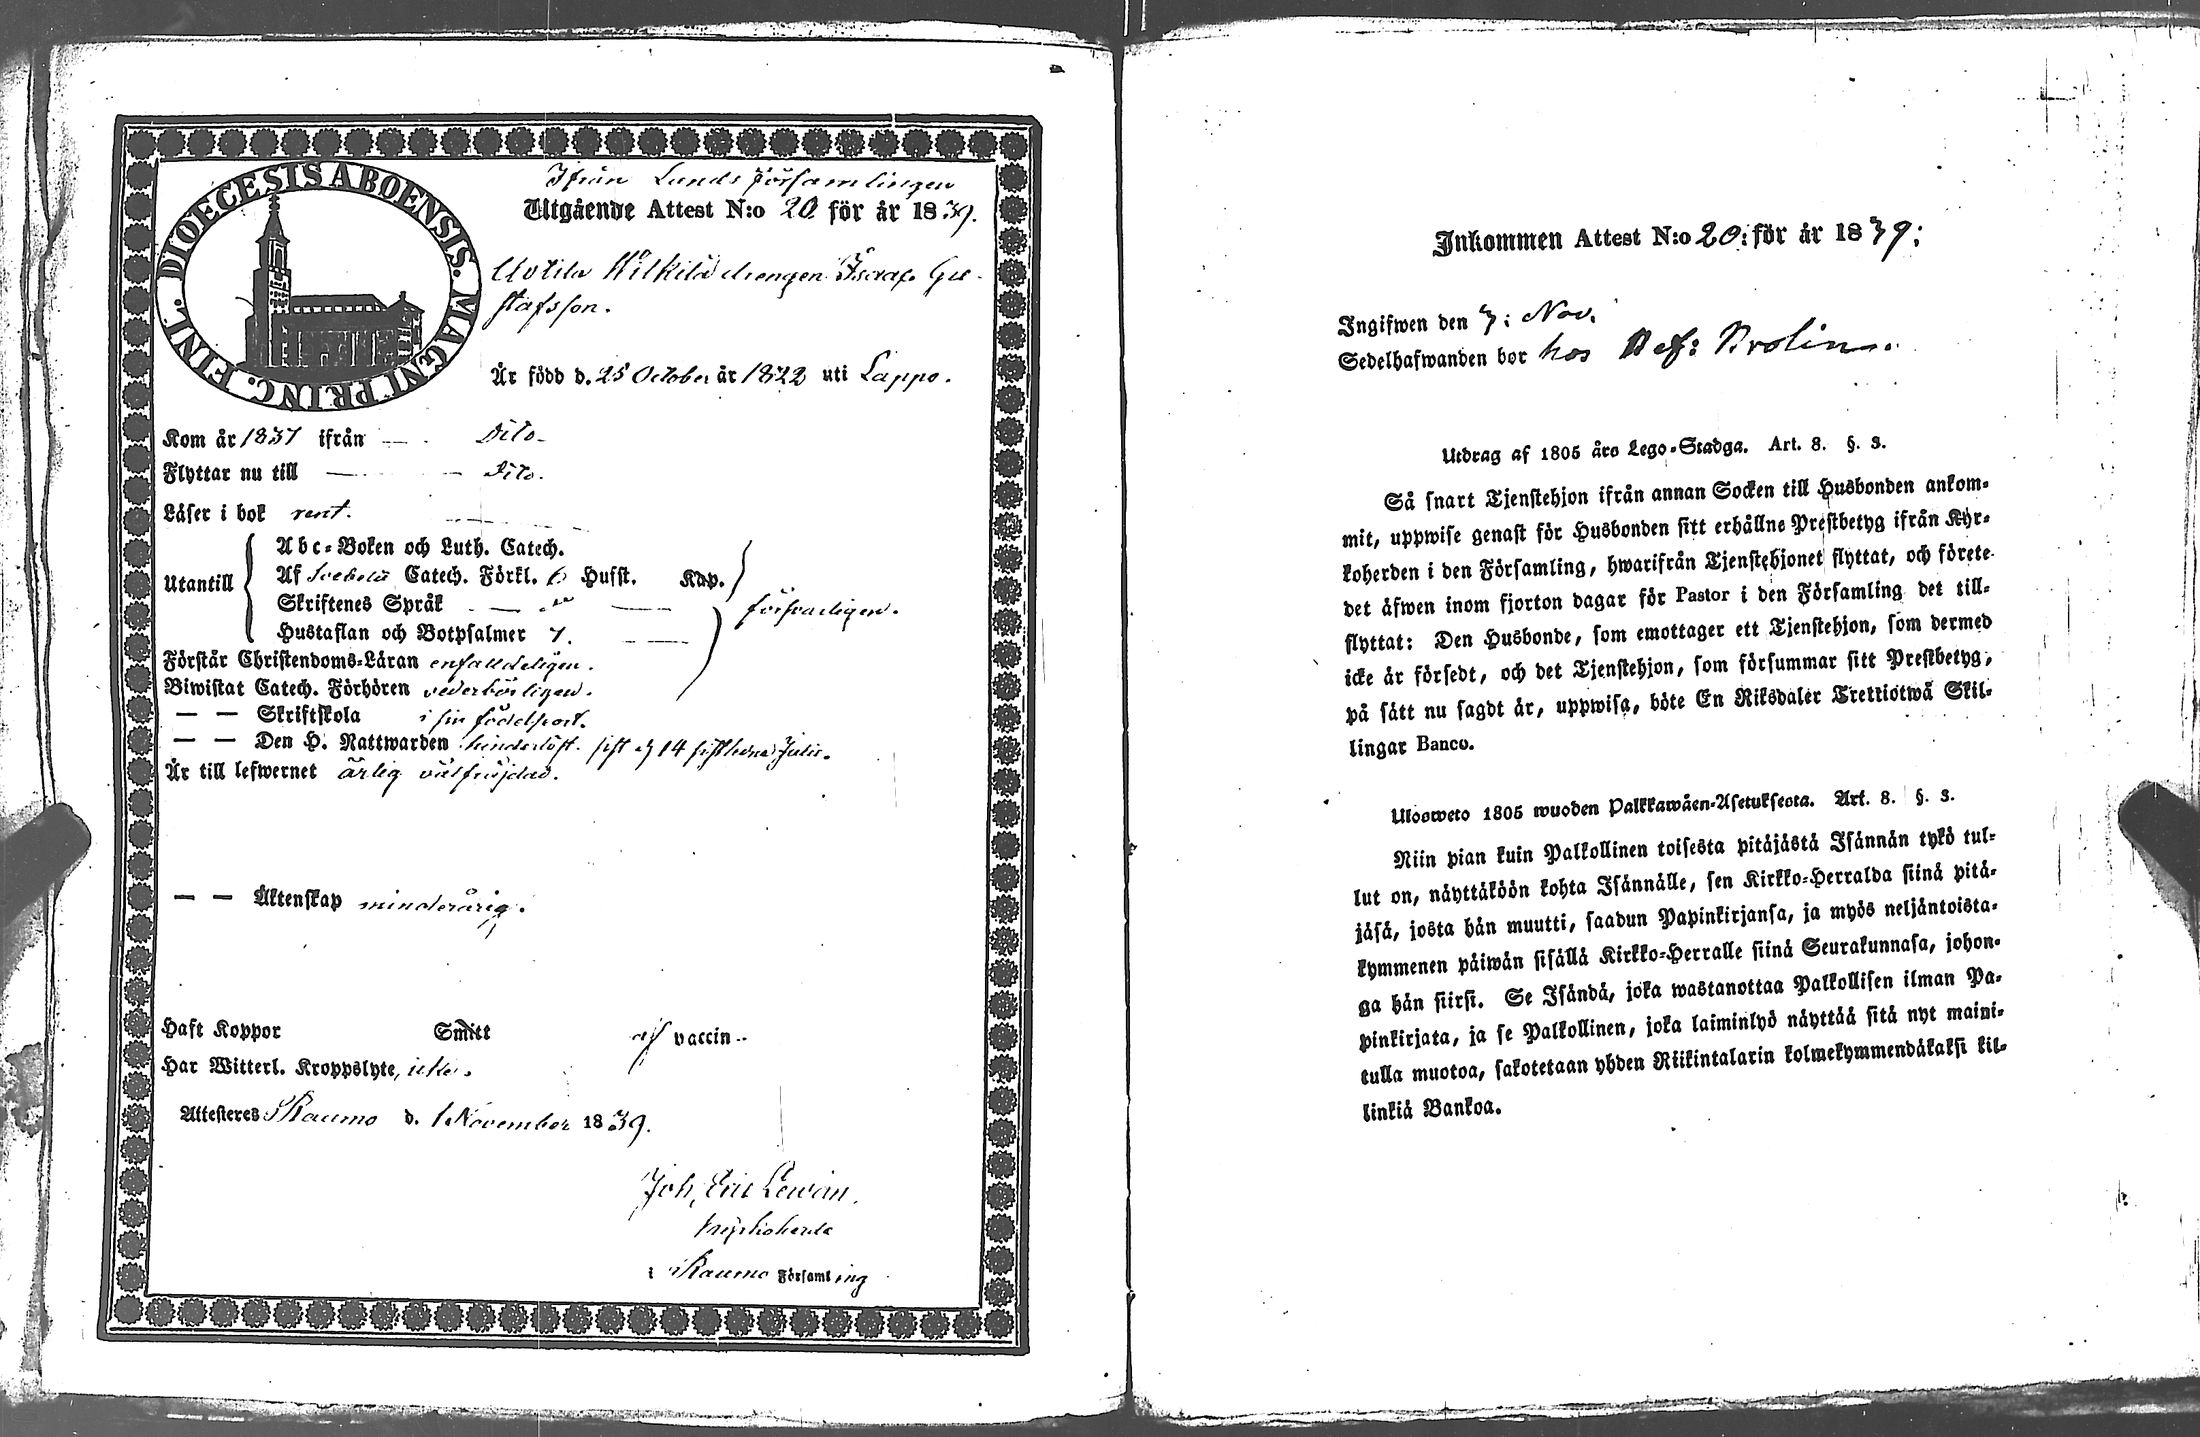 DIOECESIS ABOENSIS. MAGNI PRINC. FINL.
Ifrån Lands församlingen
Utgående Attest N:o 20 för år 1839.
Uotila Kilkilä drengen Isaac Gu-
stafsson.
Är född d. 25 October år 1822 uti Lappo.
Kom år 1837 ifrån — Dito.
Flyttar nu till — — Dito.
Läser i bok rent.
Utantill
Abc-Boken och Luth. Catech.
Af Svebelii Catech. Förkl. 6 Hufst. Kap.
Skriftenes Språk — —
Hustaflan och Botpsalmer 7. — —
försvarligen.
Förstår Christendoms-Läran enfalldeligen.
Biwistat Catech. Förhören vederbörligen.
— — Skriftskola i sin födelsort.
— — Den H. Nattwarden hinderlöst. sist d. 14 sistledne Julii.
Är till lefwernet ärlig välfräjdad.
— — Äktenskap minderårig.
Haft Koppor Smitt af vaccin..
Har Witterl. Kroppslyte, icke.
Attesteres Raumo d. 1 November 1839.
Joh, Eric Lewan.
kyrkoherde
i Raumo Församling
Inkommen Attest N:o 20: för år 1839:
Ingifwen den 7: Nov.
Sedelhafwanden bor hos Ref: Brolin.
Utdrag af 1805 års Lego-Stadga. Art. 8. §. 3.
Så snart Tjenstehjon ifrån annan Socken till Husbonden ankom-
mit, uppwise genast för Husbonden sitt erhållne Prestbetyg ifrån Kyr-
koherden i den Församling, hwarifrån Tjenstehjonet flyttat, och förete
det äfwen inom fjorton dagar för Pastor i den Församling det till-
flyttat: Den Husbonde, som emottager ett Tjenstehjon, som dermed
icke är försedt, och det Tjenstehjon, som försummar sitt Prestbetyg,
på sätt nu sagdt är, uppwisa, böte En Riksdaler Trettiotwå Skil-
lingar Banco.
Ulosweto 1805 wuoden Palkkawäen-Asetuksesta. Art. 8. §. 3.
Niin pian kuin Palkollinen toisesta pitäjästä Isännän tykö tul-
lut on, näyttäköön kohta Isännälle, sen Kirkko-Herralda siinä pitä-
jäsä, josta hän muutti, saadun Papinkirjansa, ja myös neljäntoista-
kymmenen päiwän sisällä Kirkko-Herralle siinä Seurakunnasa, johon-
ga hän siirsi. Se Isändä, joka wastanottaa Palkollisen ilman Pa-
pinkirjata, ja se Palkollinen, joka laiminlyö näyttää sitä nyt maini-
tulla muotoa, sakotetaan yhden Riikintalarin kolmekymmendäkaksi kil-
linkiä Bankoa.